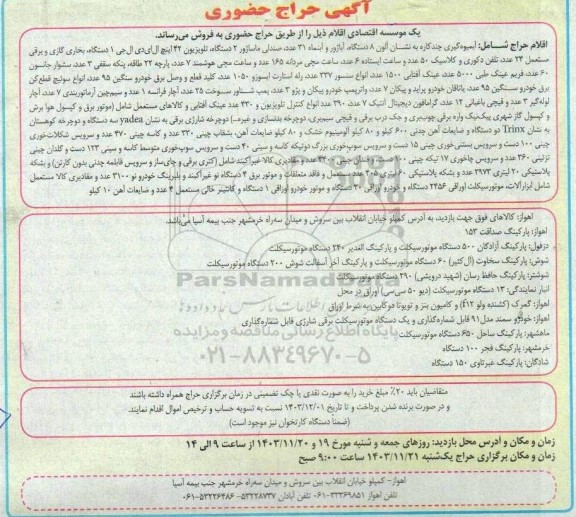 آگهی حراج حضوری
یک موسسه اقتصادی اقلام ذیل را از طریق حراج حضوری به فروش می‌رساند.
اقلام حراج شامل: آبمیوه‌گیری چندکاره به نشان آلون ۸ دستگاه، آباژور و آینه‌اد ۳۱ عدد، صندلی ماساژور ۲ دستگاه، تلویزیون ۴۲ اینچ ال‌ای‌دی ال‌جی ۱ دستگاه، بخاری گازی و برقی
مستعمل ۲۴ عدد، تلفن دکوری و کلاسیک ۵۰ عدد و ساعت ایستاده ۶ عدد، ساعت مچی مردانه ۱۶۵ عدد و ساعت مچی هوشمند ۷ عدد، پارچه ۲۲ طاقه، پنکه سقفی ۳ عدد، سشوار جانسون
۶۰ عدد، فریم عینک طبی ۵۰۰۰ عدد، عینک آفتابی ۱۵۰۰ عدد، انواع سنسور ۳۳۷ عدد، رله استارت ایسوزو ۱۰۵۰ عدد، کلید قطع و وصل برق خودرو سنگین ۹۵ عدد، انواع سوئیچ قطع‌کن
برق خودرو سنگین ۹۵ عدد، یاتاقان خودرو پراید و پیکان ۷ عدد، واترپمپ خودرو پیکان و پژو ۳ عدد، پمپ شناور سوخت ۲۵ عدد، آچار فرانسه ۱ عدد و سیم‌چین آرماتوربندی ۷ عدد، آچار
لوله‌گیر ۳ عدد و قیچی باغبانی ۱۲ عدد، گرامافون دیجیتال آنتیک ۷ عدد، ۳۹۰ عدد انواع کنترل تلویزیون و ۴۳۰ عدد عینک آفتابی و کالاهای مستعمل شامل (موتور برق و کپسول هوا برش
و کپسول گاز شهری پیک‌نیک واره برقی چوب‌بری و جک درب برقی و قیچی سیم‌بری، دوچرخه بفنساری و غیره) دوچرخه شارژی برقی به نشان yadea سه دستگاه و دوچرخه کوهستان
به نشان Trinx دو دستگاه و ضایعات آهن چدنی ۶۰۰ کیلو و ۸۰ کیلو آلومینیوم خشک و ۸۰ کیلو ضایعات آهن، بشقاب چینی ۳۳۰ عدد و کاسه چینی ۴۷۰ عدد و سرویس شکلات‌خوری
چینی ۱۰۰ دست و سرویس بستنی‌خوری چینی ۱۵ دست و سرویس سوپ‌خوری بزرگ دوتیکه کاسه و سینی ۴۰ دست و سرویس سوپ‌خوری متوسط کاسه و سینی ۱۲۳ دست و گلدان چینی
پلاستیکی ۲۰ لیتری ۳۹۷۳ عدد و بشکه پلاستیکی
شامل ابزارآلات، موتورسیکلت اوراقی ۲۴۵۶ دستگاه و خودرو اوراقی ۲۰ دستگاه و موتور خودرو اوراقی ۱ دستگاه و کانتینر خالی مستعمل ۴ عدد و ضایعات آهن ۱۰ کیلو
اهواز: کالاهای فوق جهت بازدید، به آدرس کمپلو خیابان انقلاب بین سروش و میدان سه‌راه خرمشهر جنب بیمه آسیا می‌باشد.
اهواز: پارکینگ صداقت ۱۵۳
دزفول: پارکینگ آزادگان ۵۰۰ دستگاه موتورسیکلت و پارکینگ الغدیر ۲۴۰ دستگاه موتورسیکلت
شوش: پارکینگ سخاوت (آل‌کثیر) ۶۰ دستگاه موتورسیکلت و پارکینگ آخر آسفالت شوش ۲۰۰ دستگاه موتورسیکلت
شوشتر: پارکینگ حافظ رسان (شهید درویشی) ۲۹۰ دستگاه موتورسیکلت
انبار نمایندگی: ۱۳ دستگاه موتورسیکلت (دیو ۵۰ سی‌سی) اوراق در محل
اهواز: گمرک (کشنده ولو ۴۱۲) و کامیون بنز و تویوتا دوکابین به شرط اوراق
اهواز: خودرو سمند مدل ۹۱ قابل شماره‌گذاری و یک دستگاه موتورسیکلت برقی شارژی قابل شماره‌گذاری
ماهشهر: پارکینگ ساحل ۶۵۰ دستگاه موتورسیکلت
خرمشهر: پارکینگ فجر ۱۰۰ دستگاه
شادگان: پارکینگ غیرتاوی ۱۵۰ دستگاه
ParsNamadData
پایگاه اطلاع رسانی مناقصه و مزایده
۰۲۱-۸۸۳۴۹۶۷۰-۵
متقاضیان باید ۲۰٪ مبلغ خرید را به صورت نقدی یا چک تضمینی در زمان برگزاری حراج همراه داشته باشند
و در صورت برنده شدن پرداخت و تا تاریخ ۱۴۰۳/۱۲/۰۱ نسبت به تسویه حساب و ترخیص اموال اقدام نمایند.
(ضمناً دستگاه کارتخوان نیز موجود است)
زمان و مکان و آدرس محل بازدید: روزهای جمعه و شنبه مورخ ۱۹ و ۱۴۰۳/۱۱/۲۰ از ساعت ۹ الی ۱۴
زمان و مکان برگزاری حراج یک‌شنبه ۱۴۰۳/۱۱/۲۱ ساعت ۹:۰۰ صبح
اهواز- کمپلو خیابان انقلاب بین سروش و میدان سه‌راه خرمشهر جنب بیمه آسیا
تلفن اهواز ۳۳۲۶۹۸۵۱-۰۶۱ تلفن آبادان ۵۳۲۲۸۷۳۷- ۵۳۲۲۶۴۸۶-۰۶۱